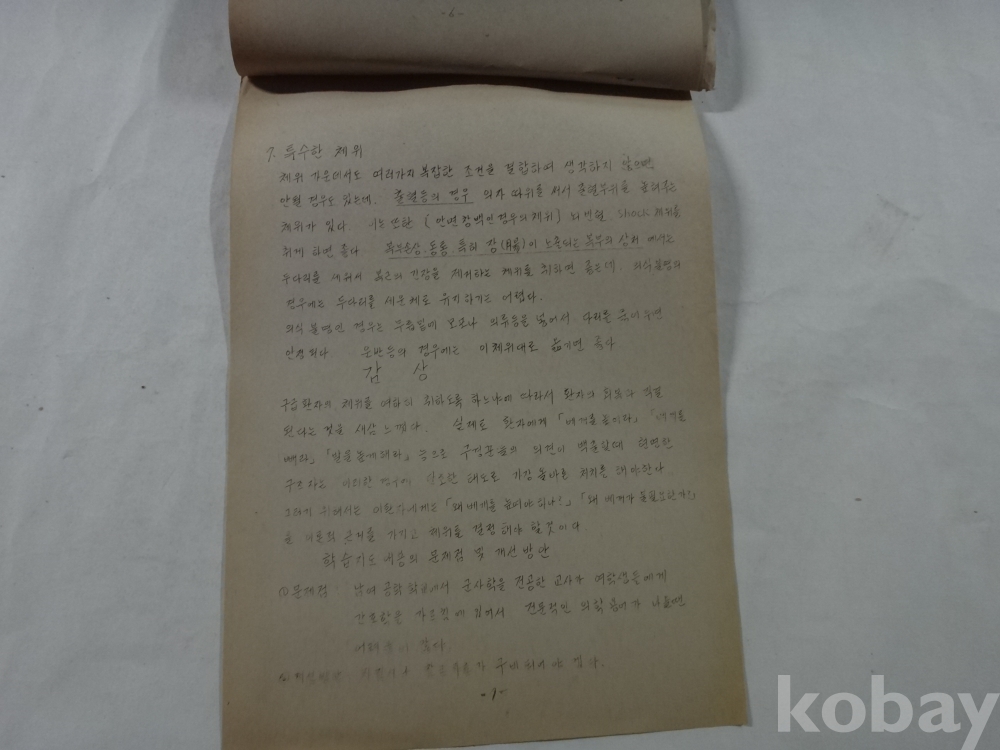 -6-
7. 특수한 체위
체위 가운데서도 여러가지 복잡한 조건을 결합하여 생각하지 않으면
안될 경우도 있는데. 출혈등의 경우 의자 따위를 써서 출혈부위를 높여주는
체위가 있다. 이는 또한 (안면창백인 경우의 체위) shock 체위를
취게 하면 좋다. 복부손상, 동통, 특히 장(腸)이 노출되는 복부의 상처 에서는
두다리를 세워서 복근의 긴장을 제거하는 체위를 취하면 좋은데. 의식불명의
경우에는 두다리를 세운체로 유지하기는 어렵다.
의식 불명인 경우는 무릎밑에 모포나 의류등을 넣어서 다리를 묶어두면
안정된다. 운반등의 경우에는 이체위대로 옮기면 좋다.
감 상
구급환자의 체위를 여하히 취하도록 하느냐에 따라서 환자의 회복과 직결
된다는 것을 새삼 느꼈다. 실제로 환자에게 「베게를 높이라」 「베게를
빼라」 「발을 높게해라」 등으로 구경꾼들의 의견이 많을 현명한
구조자는 이러한 경우에 태도로 가장 올바른 처치를 해야한다.
그러기 위해서는 이환자에게는 「왜 베게를 높여야 되나?」 「왜 베게가 불필요한가?」
을 이론적 근거를 가지고 체위를 결정해야 할것이다
학습지도 내용의 문제점 및 개선방안
① 문제점: 남여 공학 학교에서 군사학을 전공한 교사가 여학생들에게
간호학을 가르침에 있어서 전문적인 의학용어가 나올땐
많다
구비 되어야 겠다.
-7-
kobay